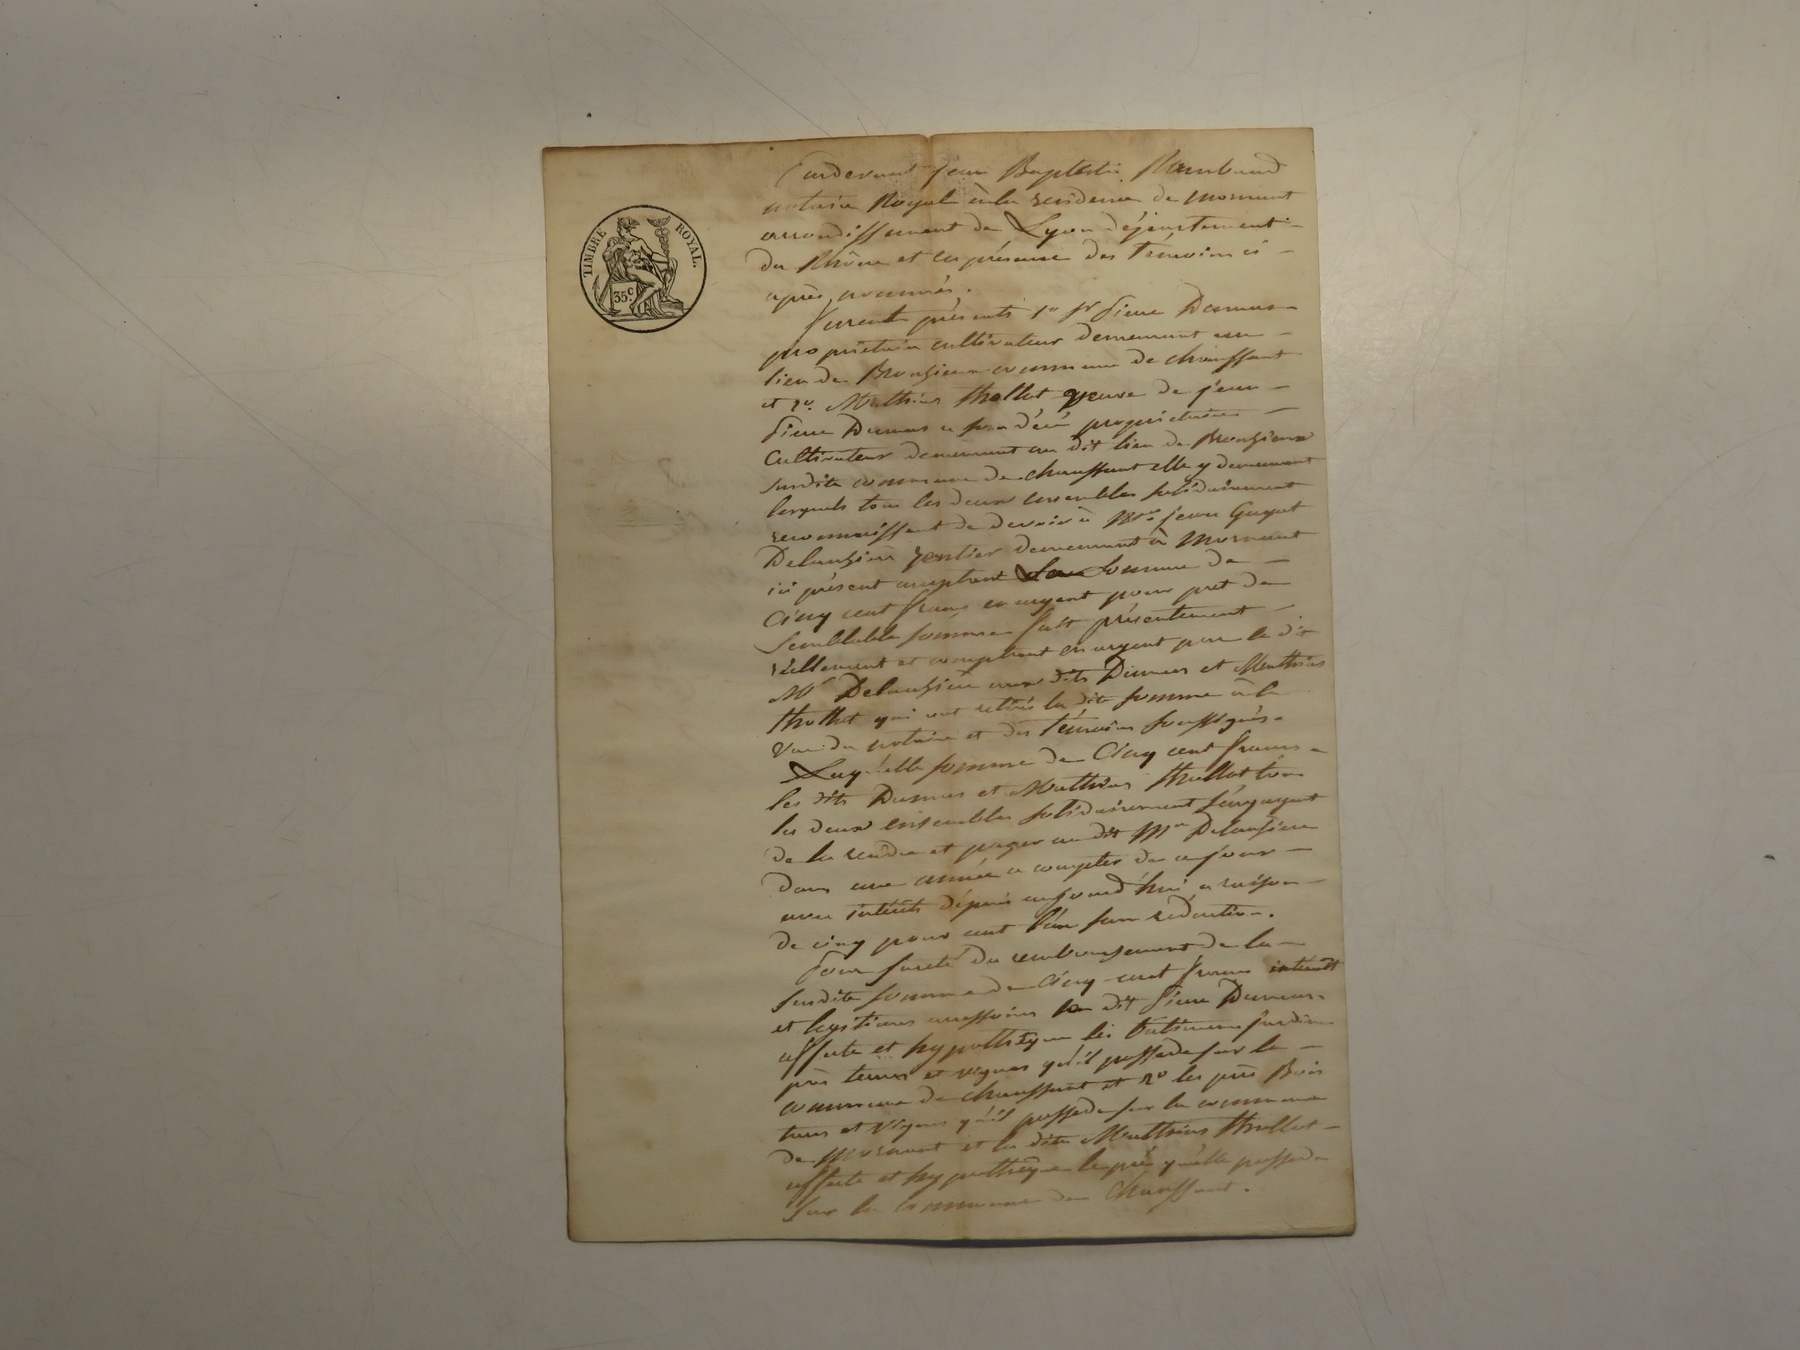 TIMBRE ROYAL.
35c
Pardevant jean Baptiste Rambaud
notaire Royal à la residence de mornant
arrondissement de Lyon département
du Rhône et en présence des temoins ci-
après nommés.
furent présents 1o sr pierre Dumas
propriétaire cultivateur demeurant au
lieu de commune de chaussant
et 2o. Mathieu thollot veuve de jean
pierre Dumas a son décé propriétaire
Cultivateur demeurant au dit lieu de
susdite commune de chaussant elle y demeurant
lesquels tous les deux ensembles solidairement
reconnaissent de devoir à Mr jean Guyot
Delauzière rentier demeurant à Mornant
ici présent acceptant La Somme de
Cinq cent francs en argent pour pret de
Semblable somme fait présentement
réellement et comptant en argent par le dit
Mr Delauzière aux dits Dumas et Mathieu
thollot qui ont retirés la dite somme à la
Vue du notaire et des témoins soussignés.
Laquelle somme de Cinq cent francs
les dits Dumas et Mathieu thollot tous
les deux ensembles solidairement s'engagent
de la rendre et payer au dit Mr Delauzière
dans une année a compter de ce jour
avec intérêts dépuis aujourd'hui a raison
de cinq pour cent l'an sans réduction.
Pour sureté du remboursement de la
susdite somme de Cinq cent francs intérêt
et legitimes accessoires le dit pierre Dumas
affecte et hypothèque les bâtimens jardin
prés terres et vignes qu'il possede sur la
commune de chaussant et 2o les prés Bois
terres et vignes qu'il possede sur la commune
de Mornant et la dite Mathieu thollot
affecte et hypothèque le pré qu'elle possede
sur la commune de Chaussant.